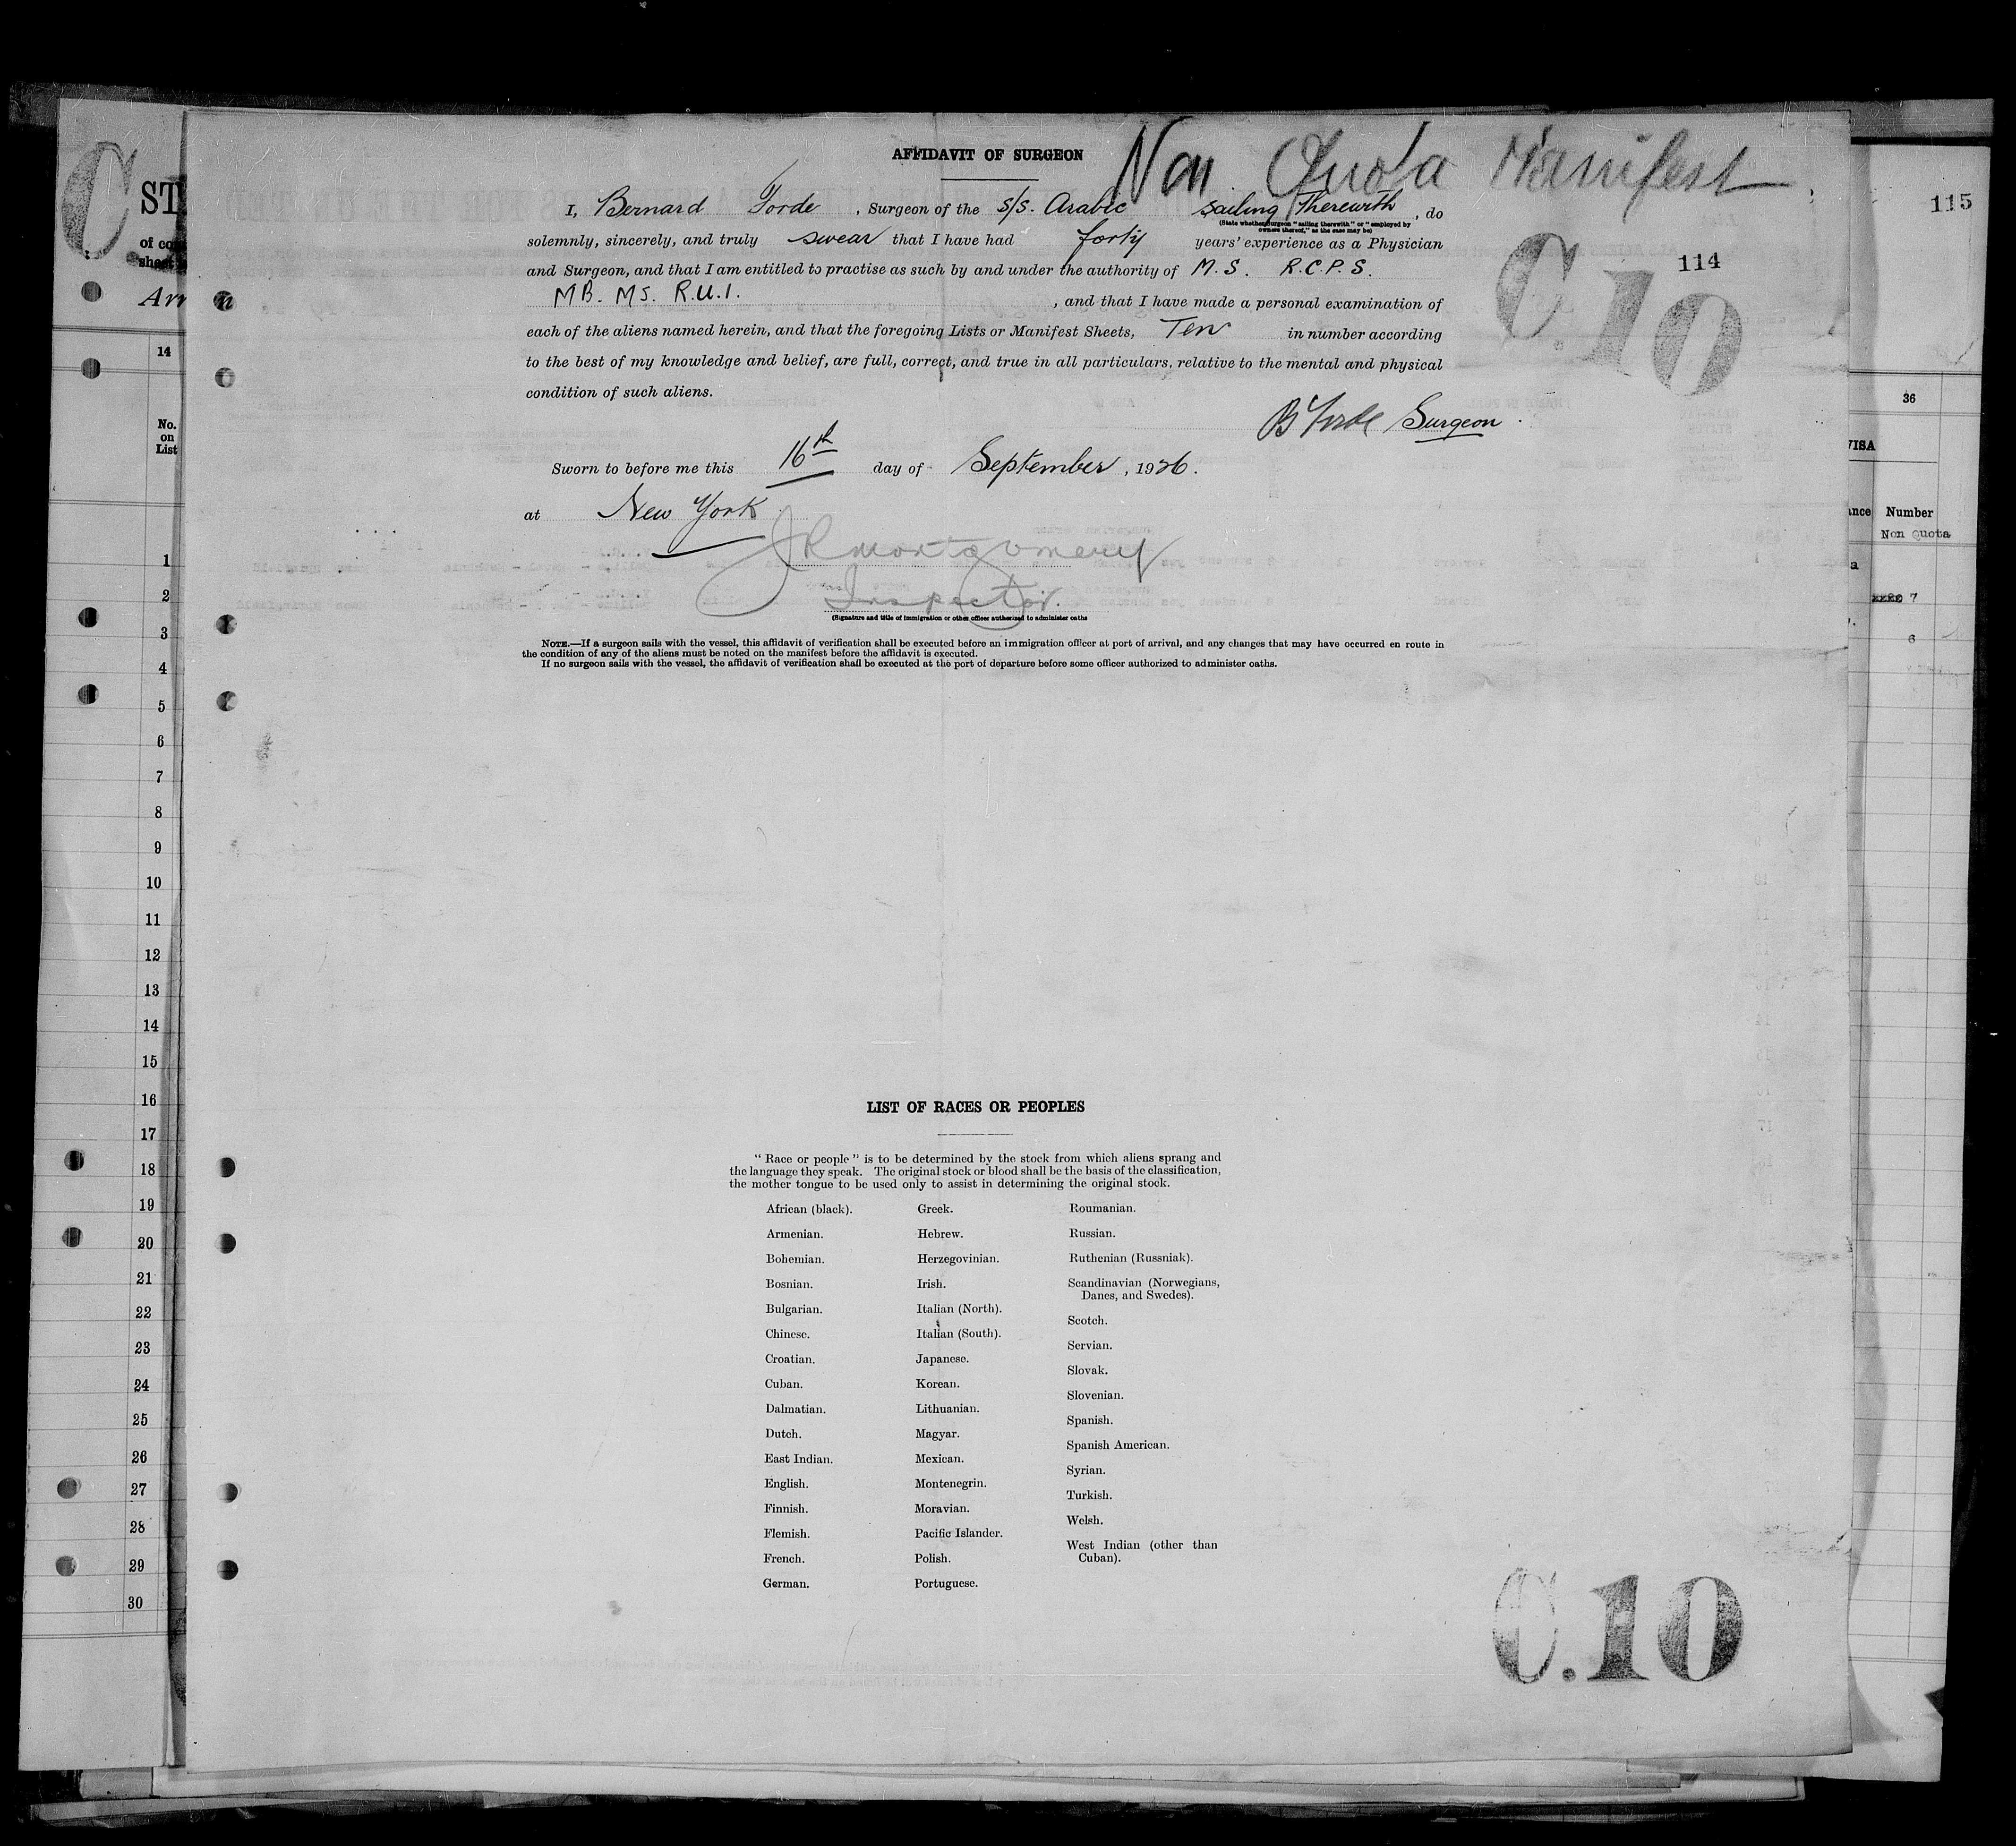 AFFIDAVIT OF SURGEON
Non Quota Manifest
I, Bernard Forde, Surgeon of the S/S. Arabic sailing therewith, do
(State whether Surgeon "sailing therewith" or "employed by
owners thereof," as the case may be)
solemnly, sincerely, and truly swear that I have had forty years' experience as a Physician
and Surgeon, and that I am entitled to practise as such by and under the authority of M.S. R.C.P.S.
MB. MS. R.U.I. , and that I have made a personal examination of
each of the aliens named herein, and that the foregoing Lists or Manifest Sheets, Ten in number according
to the best of my knowledge and belief, are full, correct, and true in all particulars, relative to the mental and physical
condition of such aliens.
B Forde Surgeon.
Sworn to before me this 16th day of September, 1926.
at New York
JR Montgomery
Inspector.
(Signature and title of immigration or other officer authorized to administer oaths
NOTE.—If a surgeon sails with the vessel, this affidavit of verification shall be executed before an immigration officer at port of arrival, and any changes that may have occurred en route in
the condition of any of the aliens must be noted on the manifest before the affidavit is executed.
If no surgeon sails with the vessel, the affidavit of verification shall be executed at the port of departure before some officer authorized to administer oaths.
114
C.10
LIST OF RACES OR PEOPLES
"Race or people" is to be determined by the stock from which aliens sprang and
the language they speak. The original stock or blood shall be the basis of the classification,
the mother tongue to be used only to assist in determining the original stock.
African (black).
Armenian.
Bohemian.
Bosnian.
Bulgarian.
Chinese.
Croatian.
Cuban.
Dalmatian.
Dutch.
East Indian.
English.
Finnish.
Flemish.
French.
German.
Greek.
Hebrew.
Herzegovinian.
Irish.
Italian (North).
Italian (South).
Japanese.
Korean.
Lithuanian.
Magyar.
Mexican.
Montenegrin.
Moravian.
Pacific Islander.
Polish.
Portuguese.
Roumanian.
Russian.
Ruthenian (Russniak).
Scandinavian (Norwegians,
Danes, and Swedes).
Scotch.
Servian.
Slovak.
Slovenian.
Spanish.
Spanish American.
Syrian.
Turkish.
Welsh.
West Indian (other than
Cuban).
C.10
C
ST
of co
sheet
Arr
14
No.
on
List
1
2
3
4
5
6
7
8
9
10
11
12
13
14
15
16
17
18
19
20
21
22
23
24
25
26
27
28
29
30
115
36
VISA
Number
Non Quota
7
6